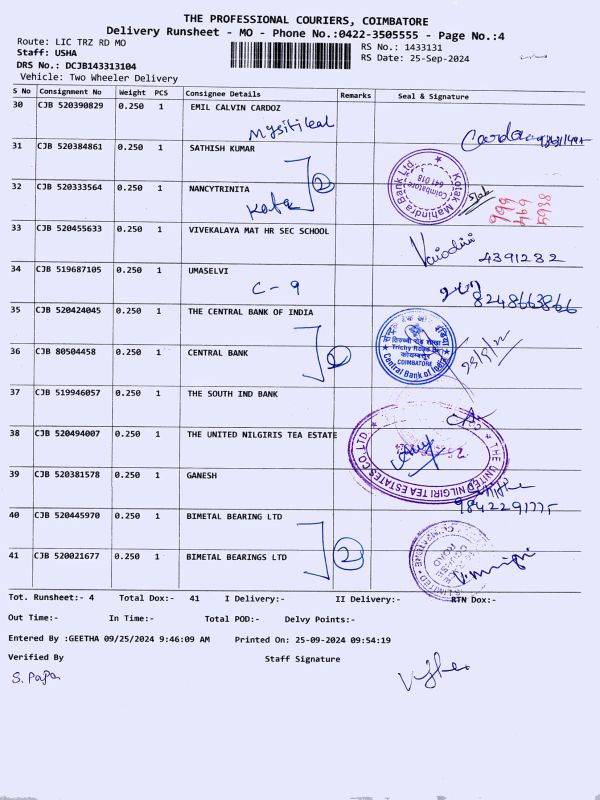 THE PROFESSIONAL COURIERS, COIMBATORE
Delivery Runsheet - MO - Phone No.:0422-3505555 - Page No.:4
Route: LIC TRZ RD MO
RS No.: 1433131
Staff: USHA
RS Date: 25-Sep-2024
DRS No.: DCJB143313104
Vehicle: Two Wheeler Delivery
S No Consignment No Weight PCS Consignee Details Remarks Seal & Signature
30 CJB 520390829 0.250 1 EMIL CALVIN CARDOZ
31 CJB 520384861 0.250 1 SATHISH KUMAR
2
Kotak Mahindra Bank Ltd.
Coimbatore
641 018
32 CJB 520333564 0.250 1 NANCYTRINITA
999
469
5938
33 CJB 520455633 0.250 1 VIVEKALAYA MAT HR SEC SCHOOL
4391282
34 CJB 519687105 0.250 1 UMASELVI
C - 9
8248663866
35 CJB 520424045 0.250 1 THE CENTRAL BANK OF INDIA
36 CJB 80504458 0.250 1 CENTRAL BANK
2
Trichy Road Br.
COIMBATORE
Central Bank of India
37 CJB 519946057 0.250 1 THE SOUTH IND BANK
38 CJB 520494007 0.250 1 THE UNITED NILGIRIS TEA ESTATE
THE UNITED NILGIRI TEA ESTATES CO. LTD.
39 CJB 520381578 0.250 1 GANESH
40 CJB 520445970 0.250 1 BIMETAL BEARING LTD
2
41 CJB 520021677 0.250 1 BIMETAL BEARINGS LTD
Tot. Runsheet:- 4 Total Dox:- 41 I Delivery:- II Delivery:- RTN Dox:-
Out Time:- In Time:- Total POD:- Delvy Points:-
Entered By :GEETHA 09/25/2024 9:46:09 AM Printed On: 25-09-2024 09:54:19
Verified By Staff Signature
S. Papa